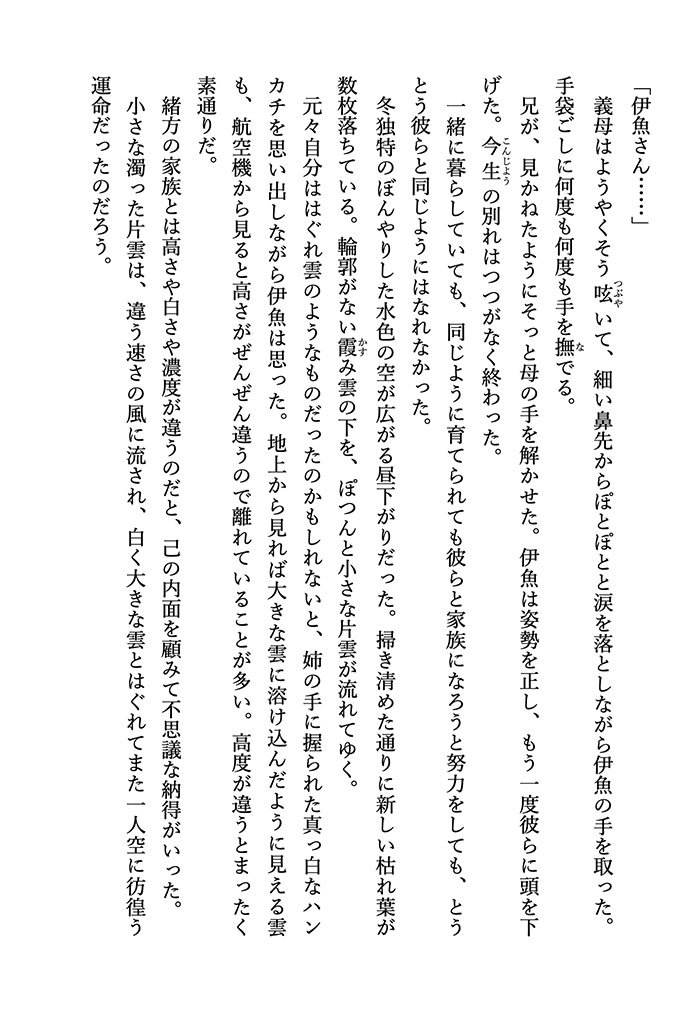 「伊魚さん……」
　義母はようやくそう呟いて、細い鼻先からぽとぽとと涙を落としながら伊魚の手を取った。
手袋ごしに何度も何度も手を撫でる。
　兄が、見かねたようにそっと母の手を解かせた。伊魚は姿勢を正し、もう一度彼らに頭を下
げた。今生の別れはつつがなく終わった。
　一緒に暮らしていても、同じように育てられても彼らと家族になろうと努力をしても、とう
とう彼らと同じようにはなれなかった。
　冬独特のぼんやりした水色の空が広がる昼下がりだった。掃き清めた通りに新しい枯れ葉が
数枚落ちている。輪郭がない霞み雲の下を、ぽつんと小さな片雲が流れてゆく。
　元々自分ははぐれ雲のようなものだったのかもしれないと、姉の手に握られた真っ白なハン
カチを思い出しながら伊魚は思った。地上から見れば大きな雲に溶け込んだように見える雲
も、航空機から見ると高さがぜんぜん違うので離れていることが多い。高度が違うとまったく
素通りだ。
　緒方の家族とは高さや白さや濃度が違うのだと、己の内面を顧みて不思議な納得がいった。
　小さな濁った片雲は、違う速さの風に流され、白く大きな雲とはぐれてまた一人空に彷徨う
運命だったのだろう。